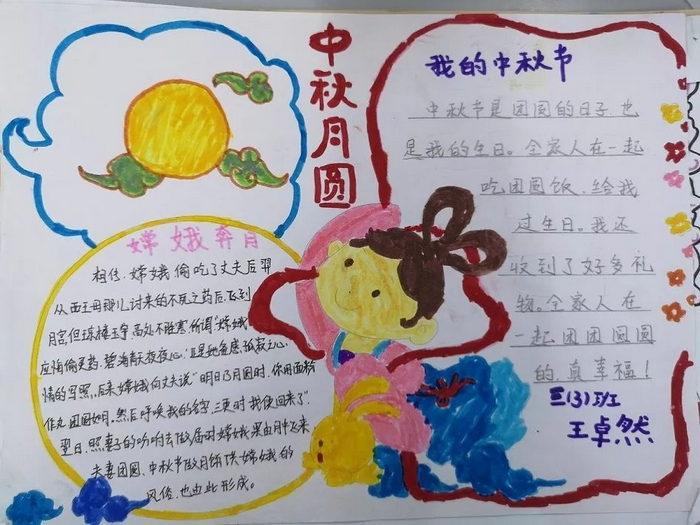 中秋月圆
我的中秋节
中秋节是团圆的日子.也
是我的生日。全家人在一起
吃团圆饭.给我
过生日。我还
收到了好多礼
物。全家人在
一起团团圆圆
的.真幸福!
三(3)班
王卓然
嫦娥奔月
相传.嫦娥偷吃了丈夫后羿
从西王母那儿讨来的不死之药后.飞到
月宫.但琼楼玉宇.高处不胜寒.所谓"嫦娥
应悔偷灵药.碧海青天夜夜心."正是她倍感孤寂之心
情的写照。后来嫦娥向丈夫说"明日乃月圆时.你用面粉
作丸.团圆如月.然后呼唤我的名字.三更时我便回来了".
翌日.照妻子的吩咐去做届时嫦娥果由月中飞来.
夫妻团圆、中秋节做月饼供嫦娥的
风俗.也由此形成。